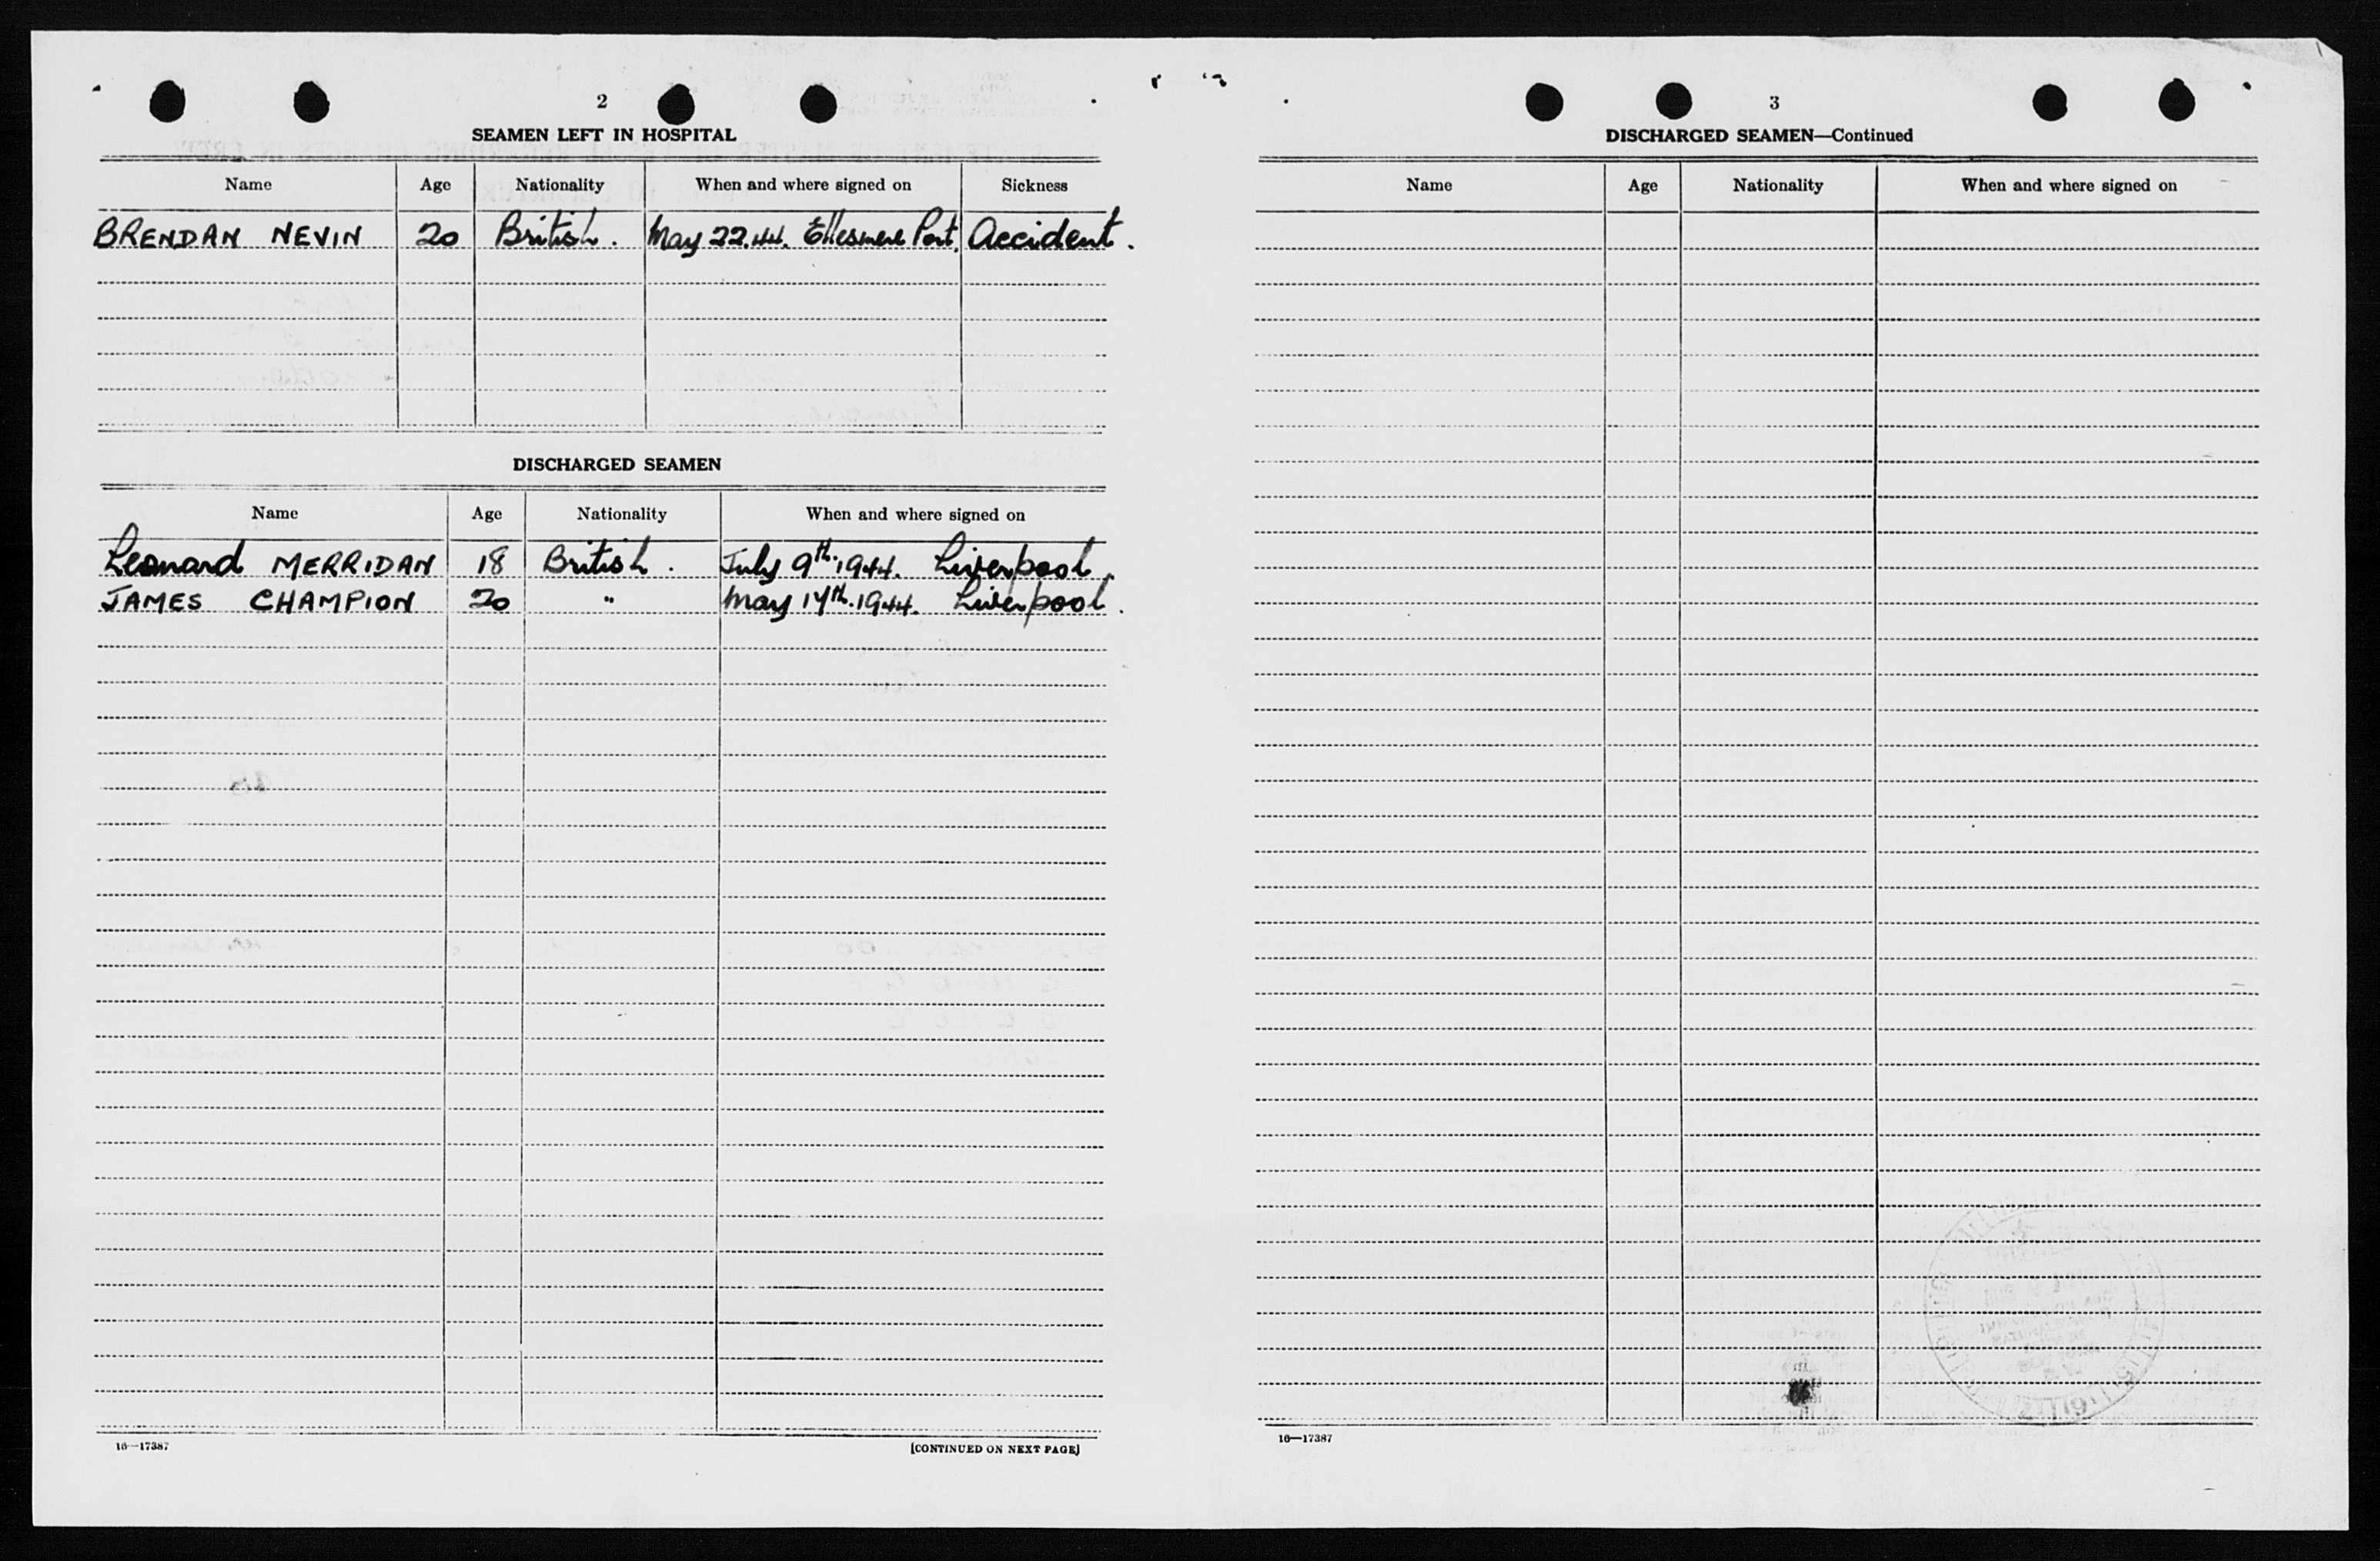 2
SEAMEN LEFT IN HOSPITAL
Name Age Nationality When and where signed on Sickness
BRENDAN NEVIN 20 British. May 22.44. Ellesmere Port. Accident.
DISCHARGED SEAMEN
Name Age Nationality When and where signed on
Leonard MERRIDAN 18 British. July 9th.1944. Liverpool.
JAMES CHAMPION 20 " May 17th.1944. Liverpool.
16—17387
[CONTINUED ON NEXT PAGE]
3
DISCHARGED SEAMEN—Continued
Name Age Nationality When and where signed on
16—17387